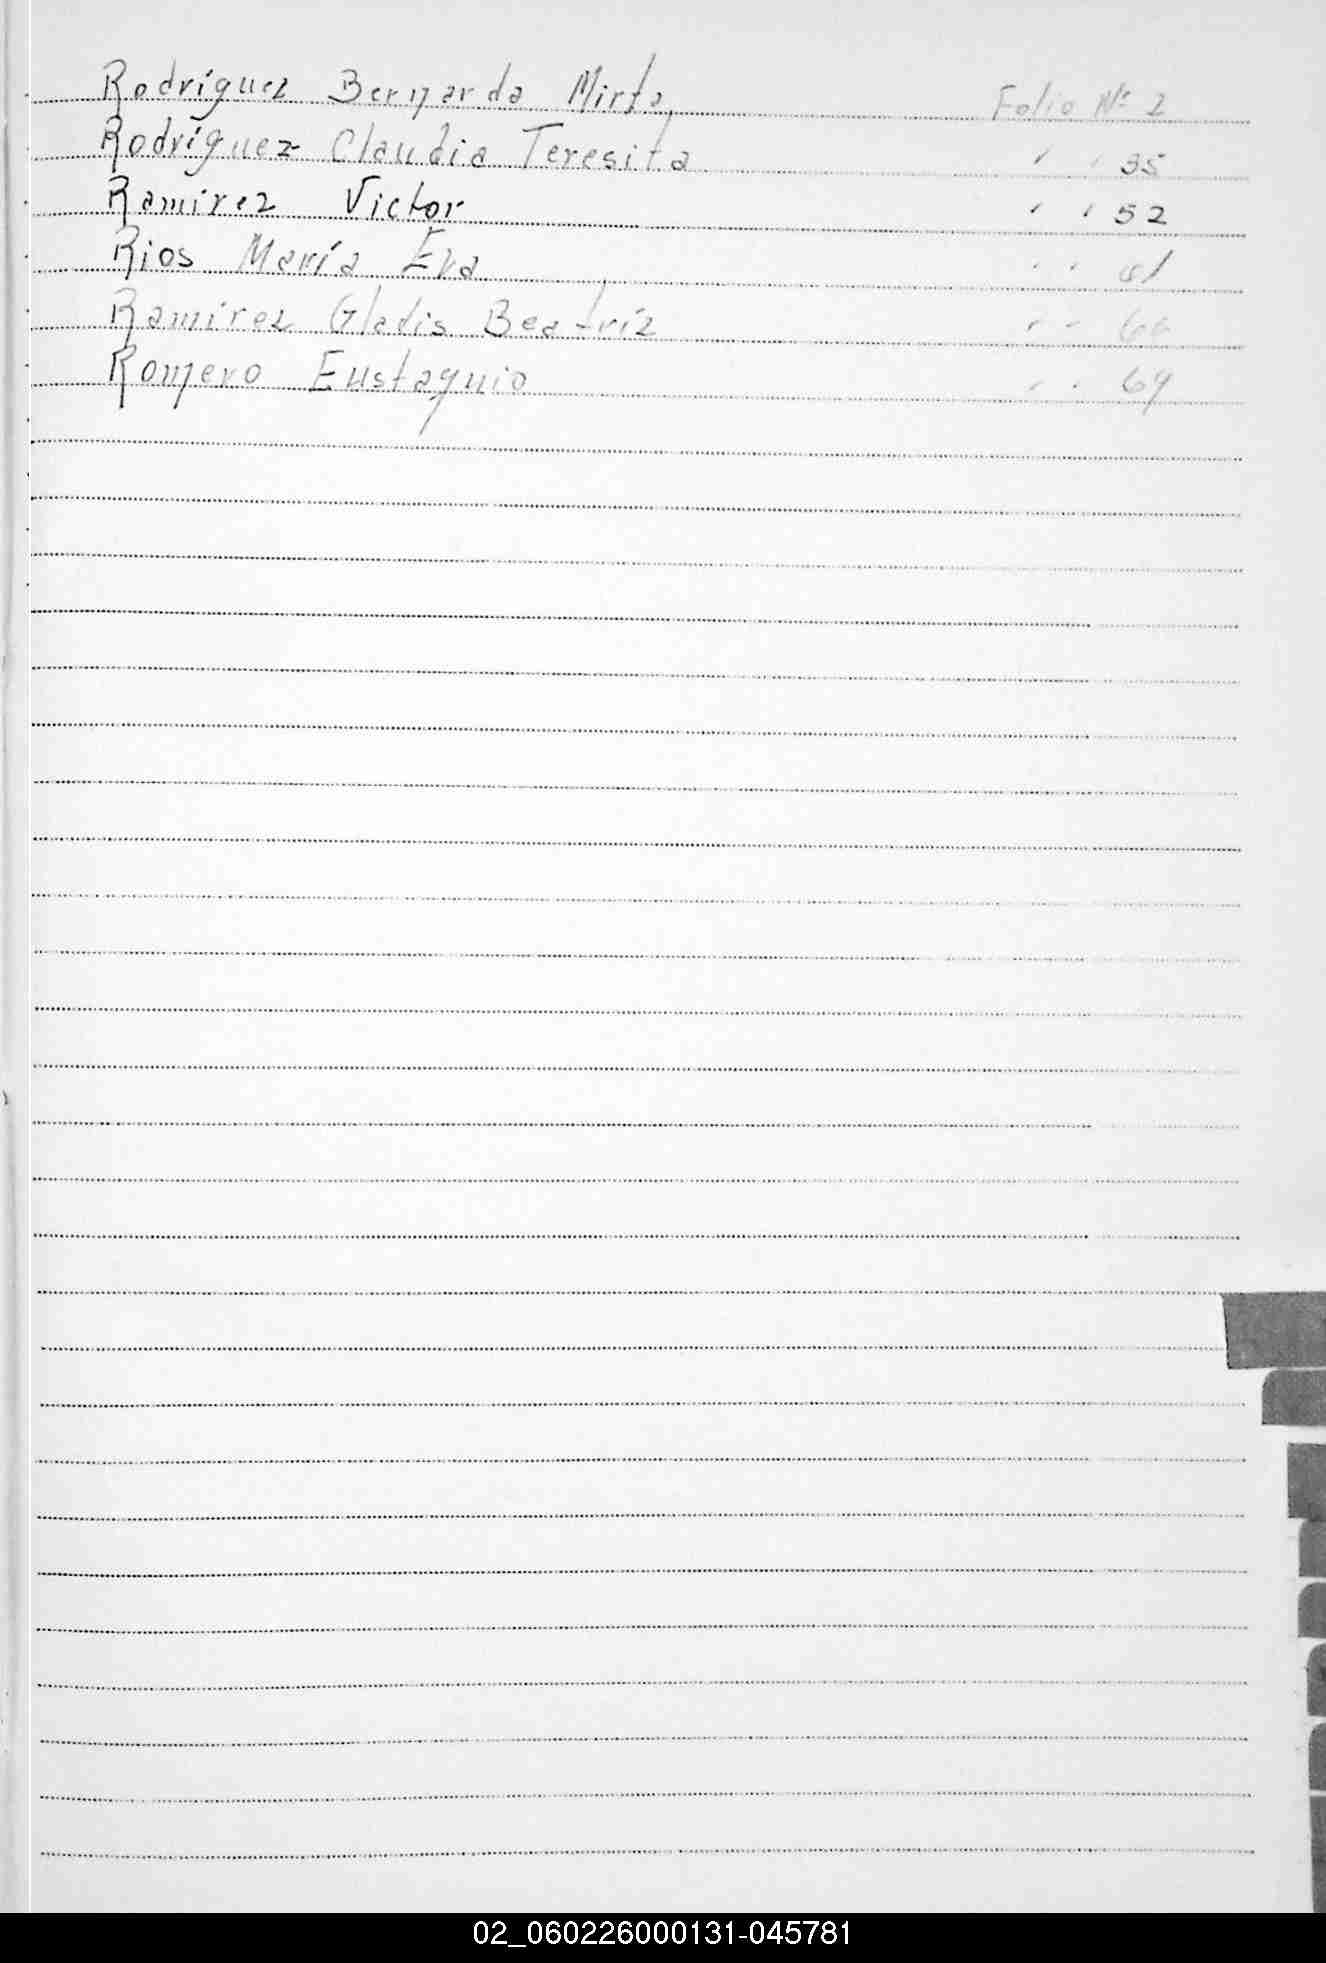 Rodríguez Bernarda Mirta Folio Nº 2
Rodríguez Claudia Teresita " " 35
Ramirez Victor " " 52
Rios María Eva " "
Ramirez Gladis Beatríz " " 66
Romero Eustaquio " " 69
02_060226000131-045781